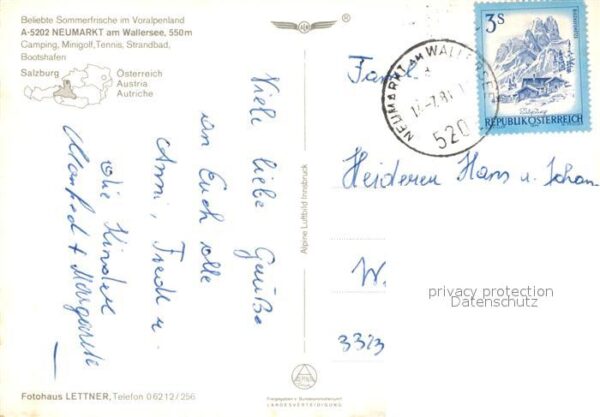 Beliebte Sommerfrische im Voralpenland
A-5202 NEUMARKT am Wallersee, 550m
Camping, Minigolf, Tennis, Strandbad,
Bootshafen
Salzburg
Österreich
Austria
Autriche
Viele liebe Grüße
an Euch alle
Anni, Friedl u.
die Kinder
Manfred + Margarete
Fotohaus LETTNER, Telefon 0 62 12 / 256
Alpine Luftbild Innsbruck
Freigegeben v. Bundesministerium f.
LANDESVERTEIDIGUNG
NEUMARKT AM WALLERSEE
520
3S
REPUBLIK ÖSTERREICH
Fam.
Heideren Hans u. Johan
W.
3323
privacy protection
Datenschutz